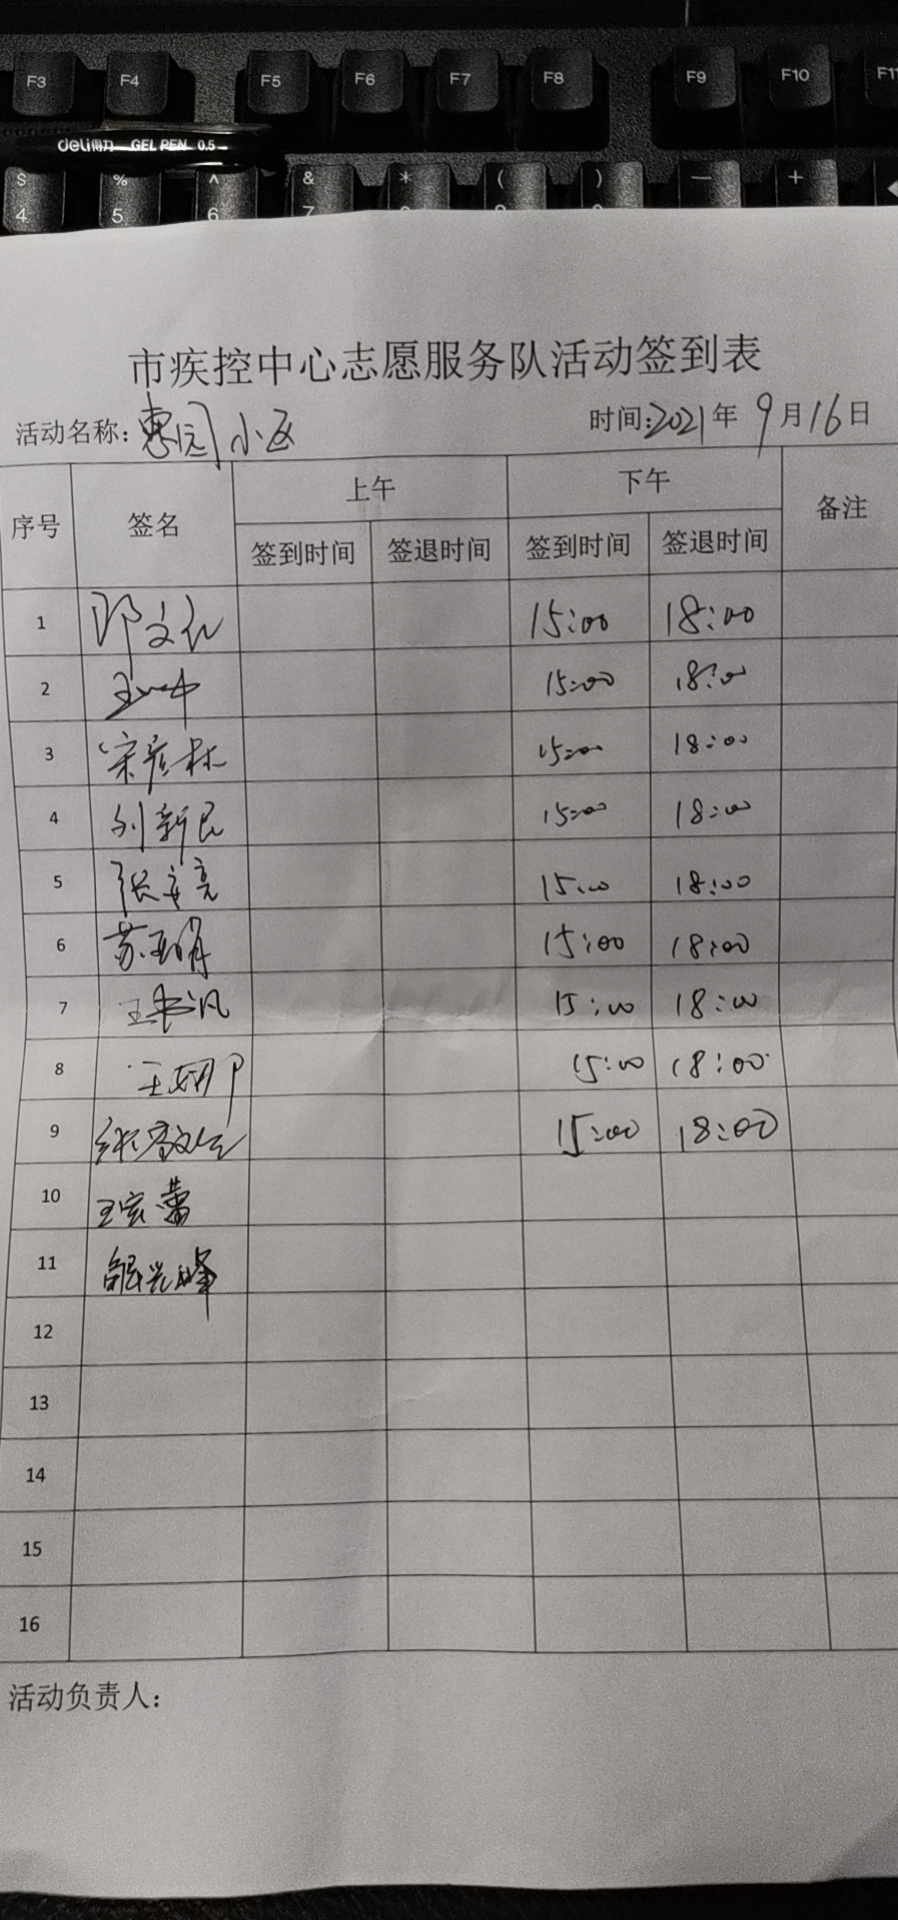 F3 F4 F5 F6 F7 F8 F9 F10 F11
deli得力 GEL PEN 0.5
$ % ^ & * ( ) — +
4 5 6 7
市疾控中心志愿服务队活动签到表
活动名称：惠园小区 时间：2021年9月16日
序号 签名 上午 下午 备注
签到时间 签退时间 签到时间 签退时间
1 15:00 18:00
2 15:00 18:00
3 宋彦林 15:00 18:00
4 刘新民 15:00 18:00
5 张安亮 15:00 18:00
6 苏亚娟 15:00 18:00
7 15:00 18:00
8 15:00 18:00
9 15:00 18:00
10 王宏蕾
11
12
13
14
15
16
活动负责人：